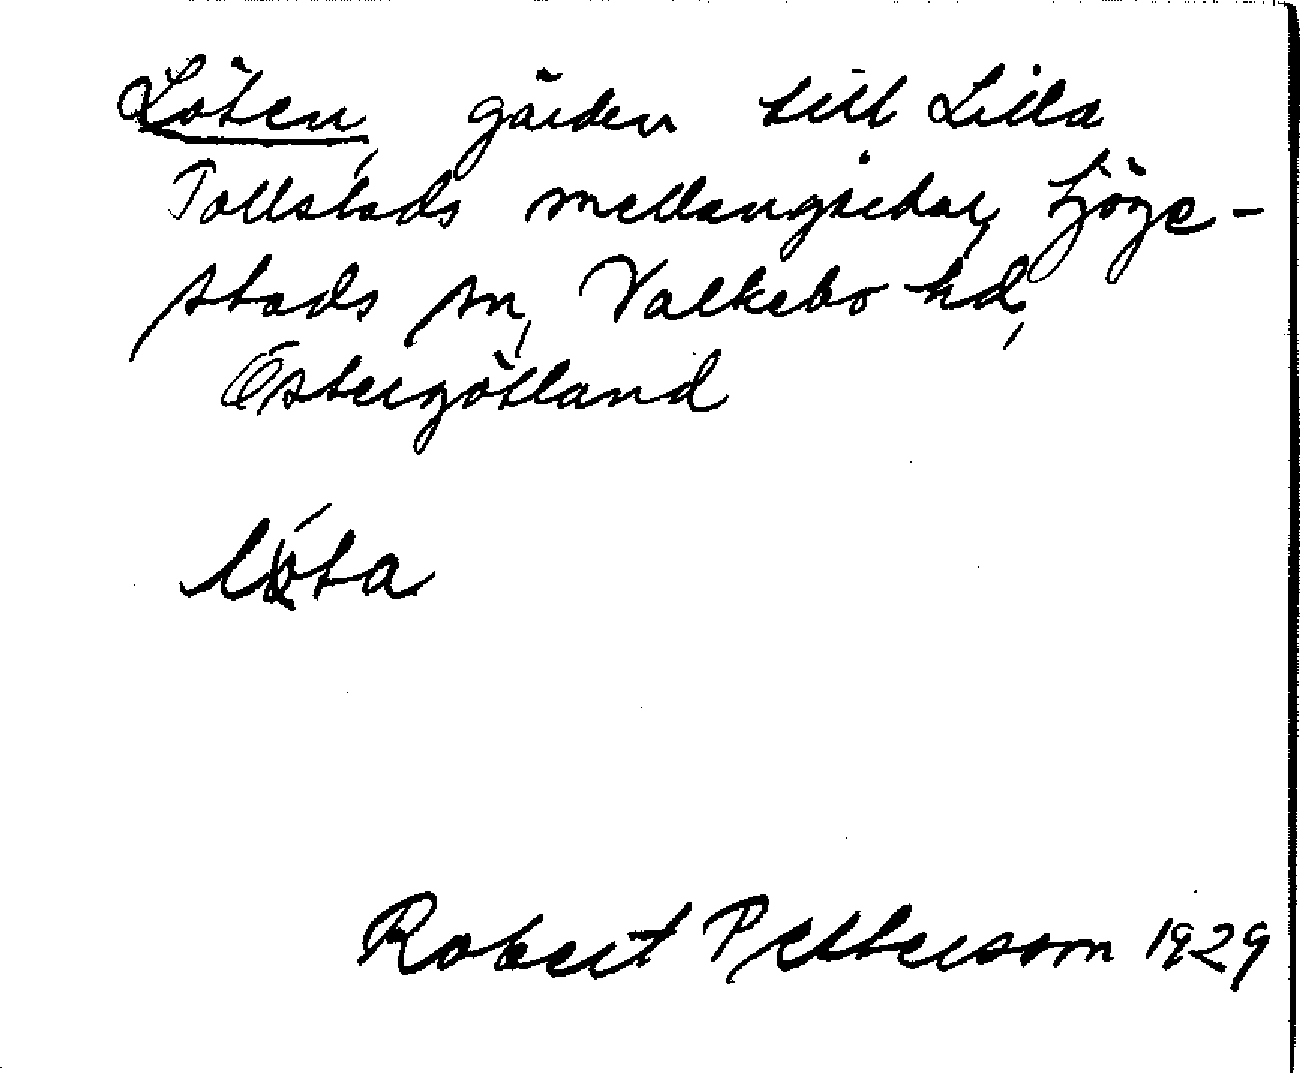 Löten, gärden till Lilla
Tollstads mellangärdar, Ljöge-
stads sn, Valkebo hd,
Östergötland
löta
Robert Pettersson 1929